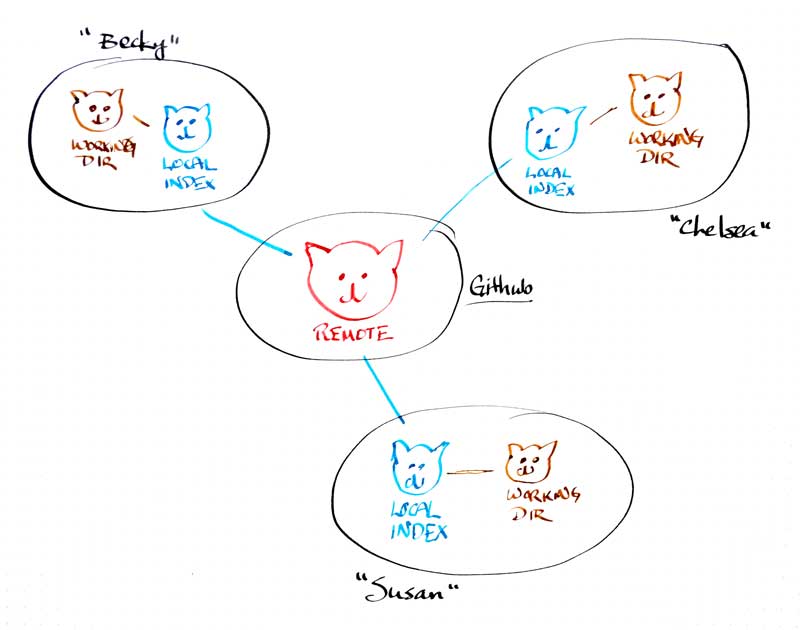 "Becky"
WORKING
DIR
LOCAL
INDEX
LOCAL
INDEX
WORKING
DIR
"Chelsea"
REMOTE
Github
LOCAL
INDEX
WORKING
DIR
"Susan"